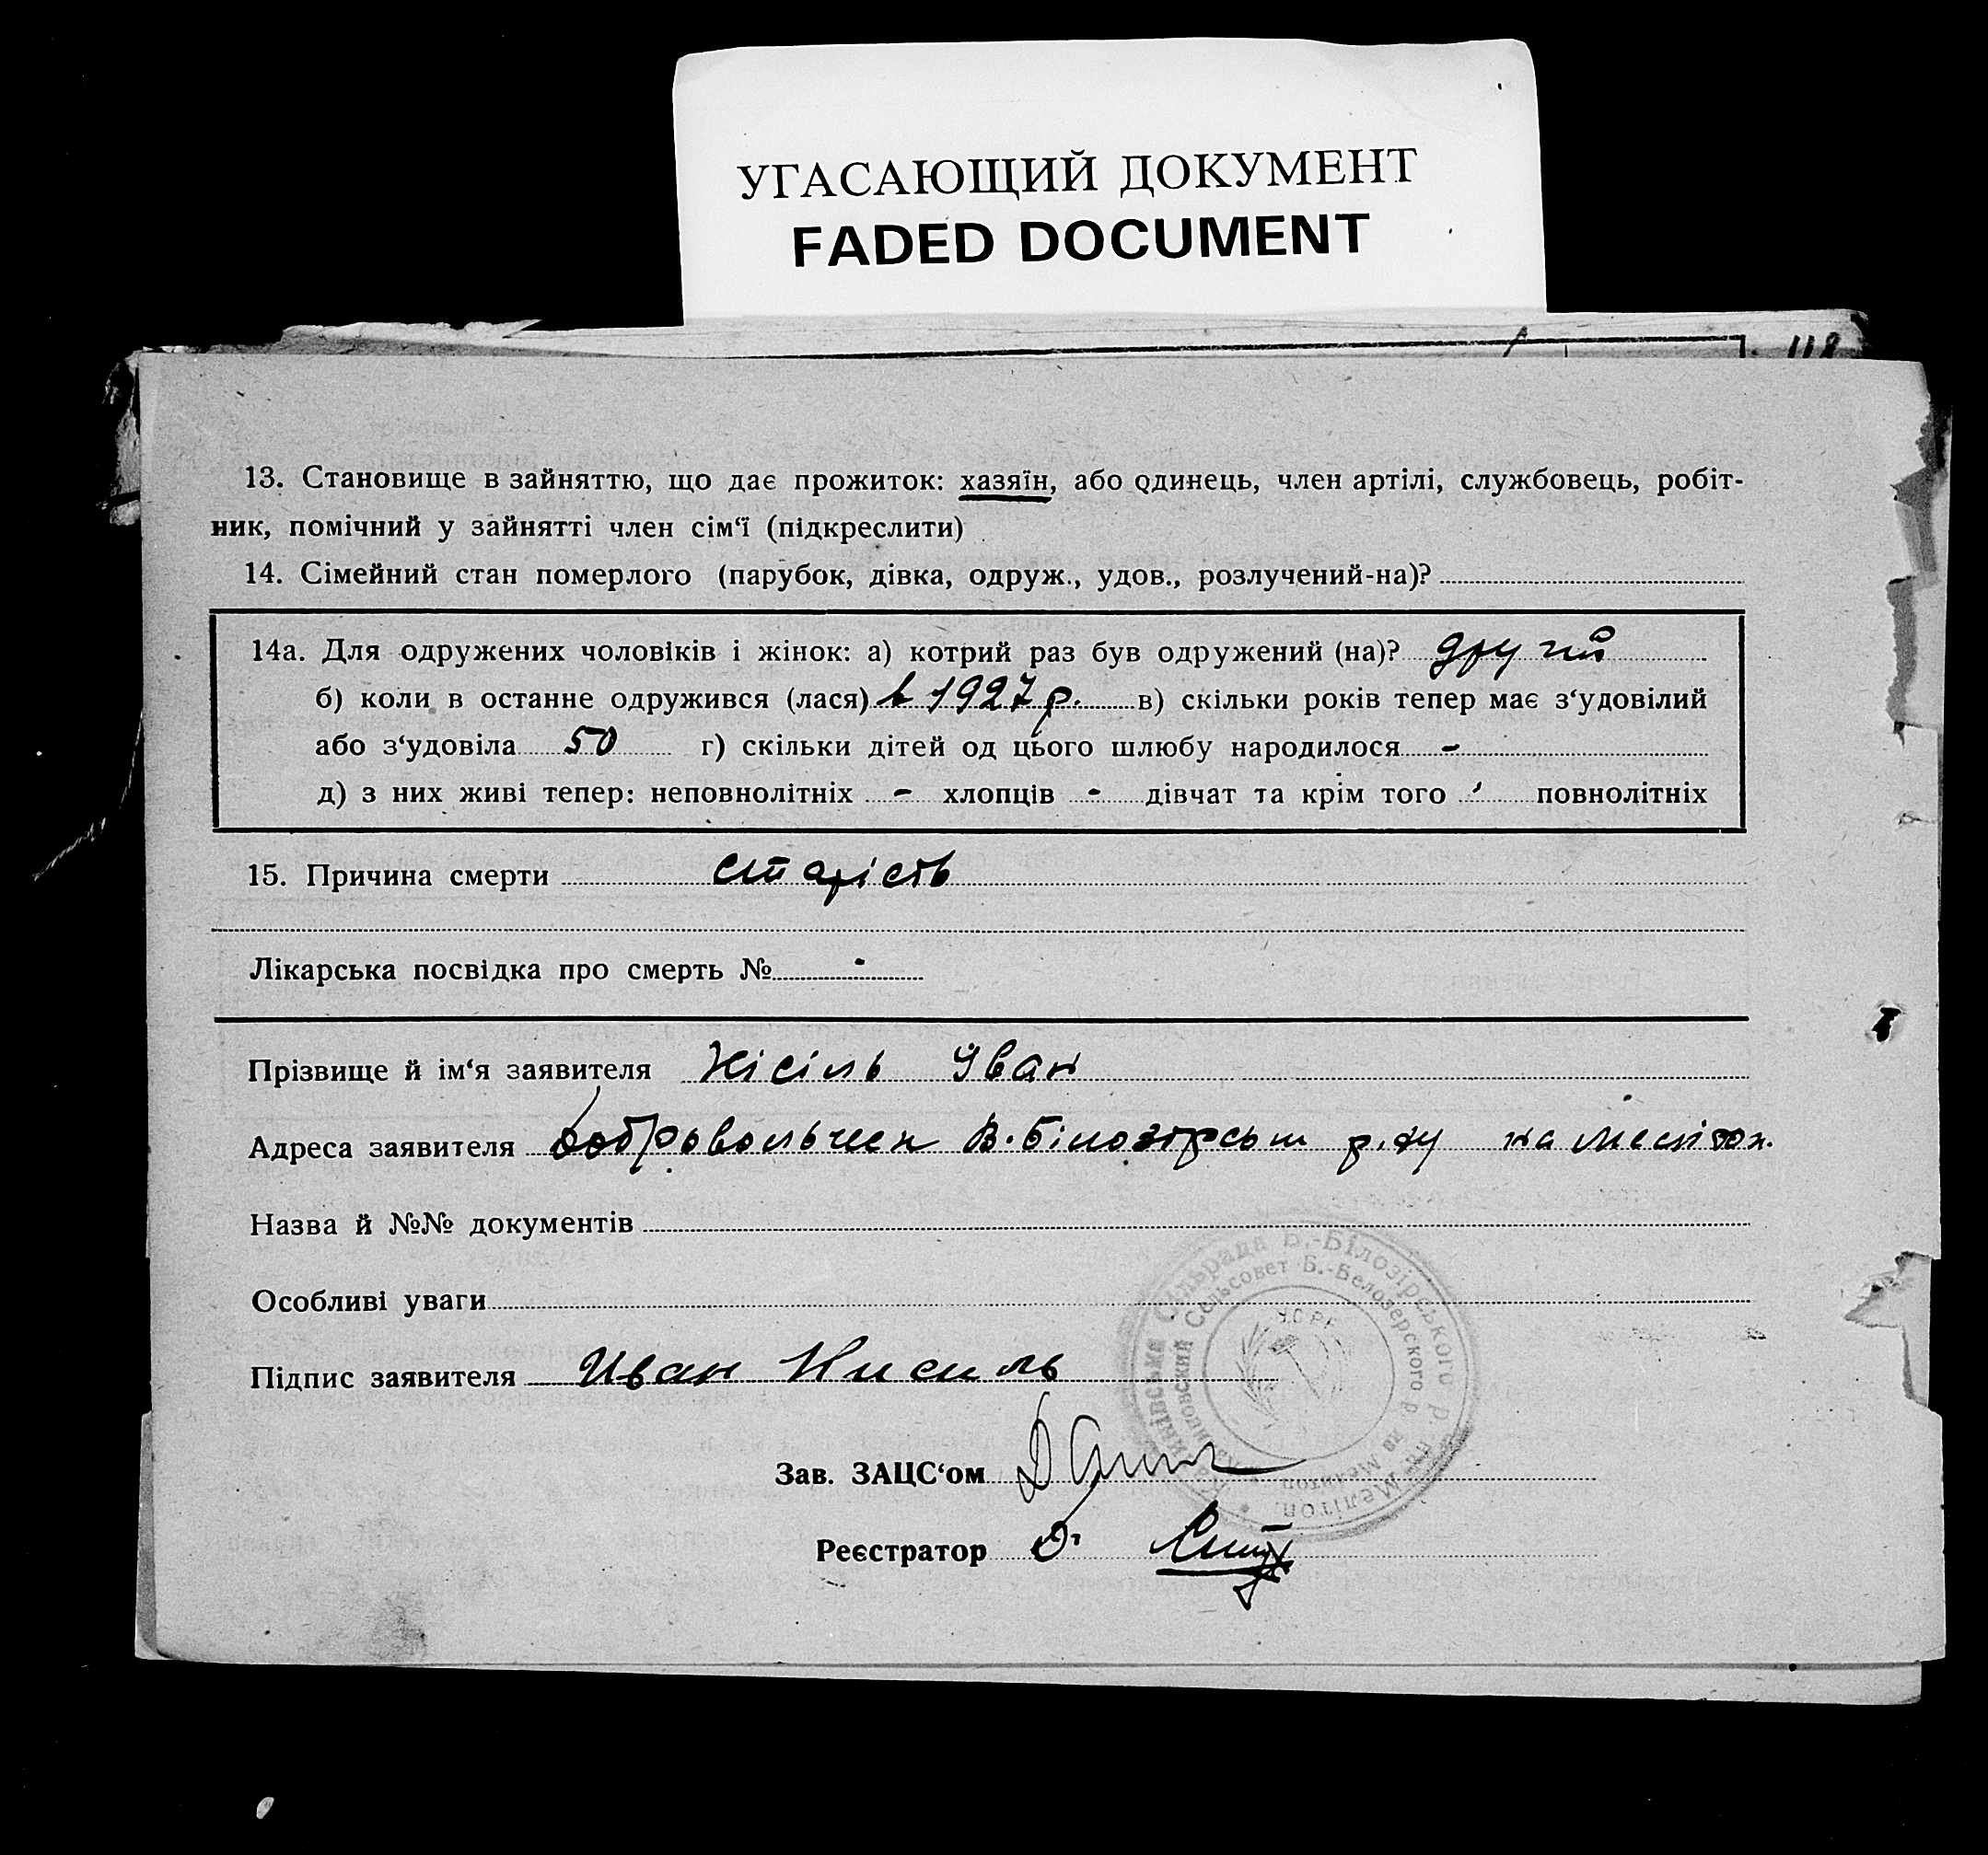 УГАСАЮЩИЙ ДОКУМЕНТ
FADED DOCUMENT
118
13. Становище в зайняттю, що дає прожиток: хазяїн, або одинець, член артілі, службовець, робіт-
ник, помічний у зайнятті член сім‘ї (підкреслити)
14. Сімейний стан померлого (парубок, дівка, одруж., удов., розлучений-на)?
14а. Для одружених чоловіків і жінок: а) котрий раз був одружений (на)? другий
б) коли в останне одружився (лася) в 1927 р. в) скільки років тепер має з‘удовілий
або з‘удовіла 50 г) скільки дітей од цього шлюбу народилося -
д) з них живі тепер: неповнолітніх - хлопців - дівчат та крім того повнолітніх
15. Причина смерти старість
Лікарська посвідка про смерть № -
Прізвище й ім‘я заявителя Кісіль Іван
Адреса заявителя В. Білозірськ р.ну на Мелітоп.
Назва й №№ документів
Особливі уваги
Підпис заявителя Иван Кисиль
Зав. ЗАЦС‘ом
Реєстратор
Сільрада Б.-Білозірського р на Мелітоп.
Сельсовет Б.-Белозерского р на Мелитоп
УСРР